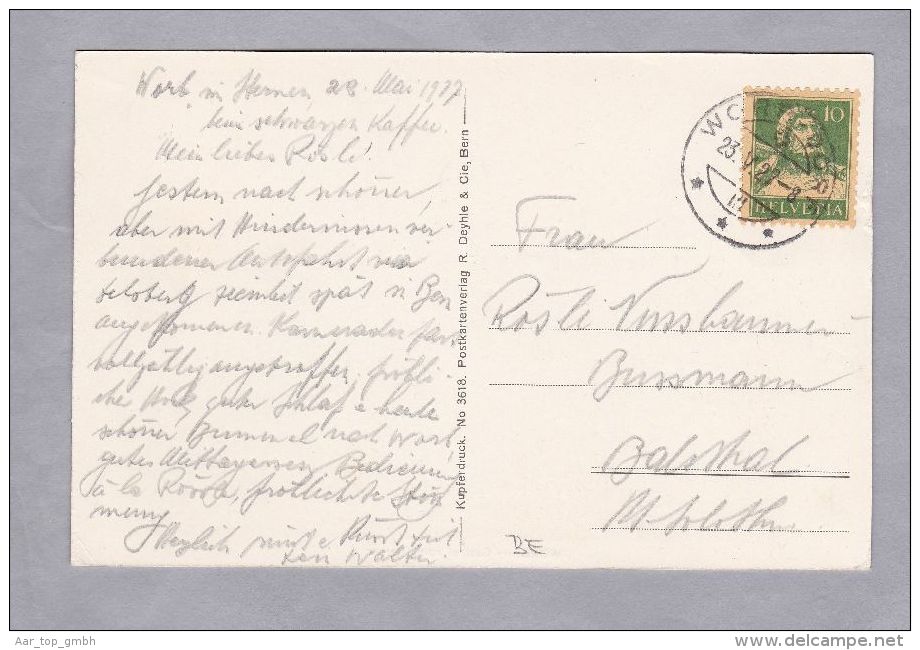 Worb im Sternen, 23. Mai 1927
beim schwarzen Kaffee.
Mein liebes Rösli!
Gestern nach schöner,
aber mit Hindernissen ver
bundener Autofahrt via
Delsberg ziemlich spät in Bern
angekommen. Kameraden fast
vollzählig angetroffen, fröhli-
cher Hock, guter Schlaf & heute
schöner Bummel nach Worb,
gutes Mittagessen, Bedienung
à la Rössli, fröhlichste
Herzlich grüsst & küsst
Walter
Kupferdruck. No 3618. Postkartenverlag R. Deyhle & Cie, Bern
WORB
23.V.27-8
10
HELVETIA
Frau
Rösli Nussbaumer-
Bussmann
Balsthal
Kt. Solothurn
BE
Aar_top_gmbh
www.delcampe.net